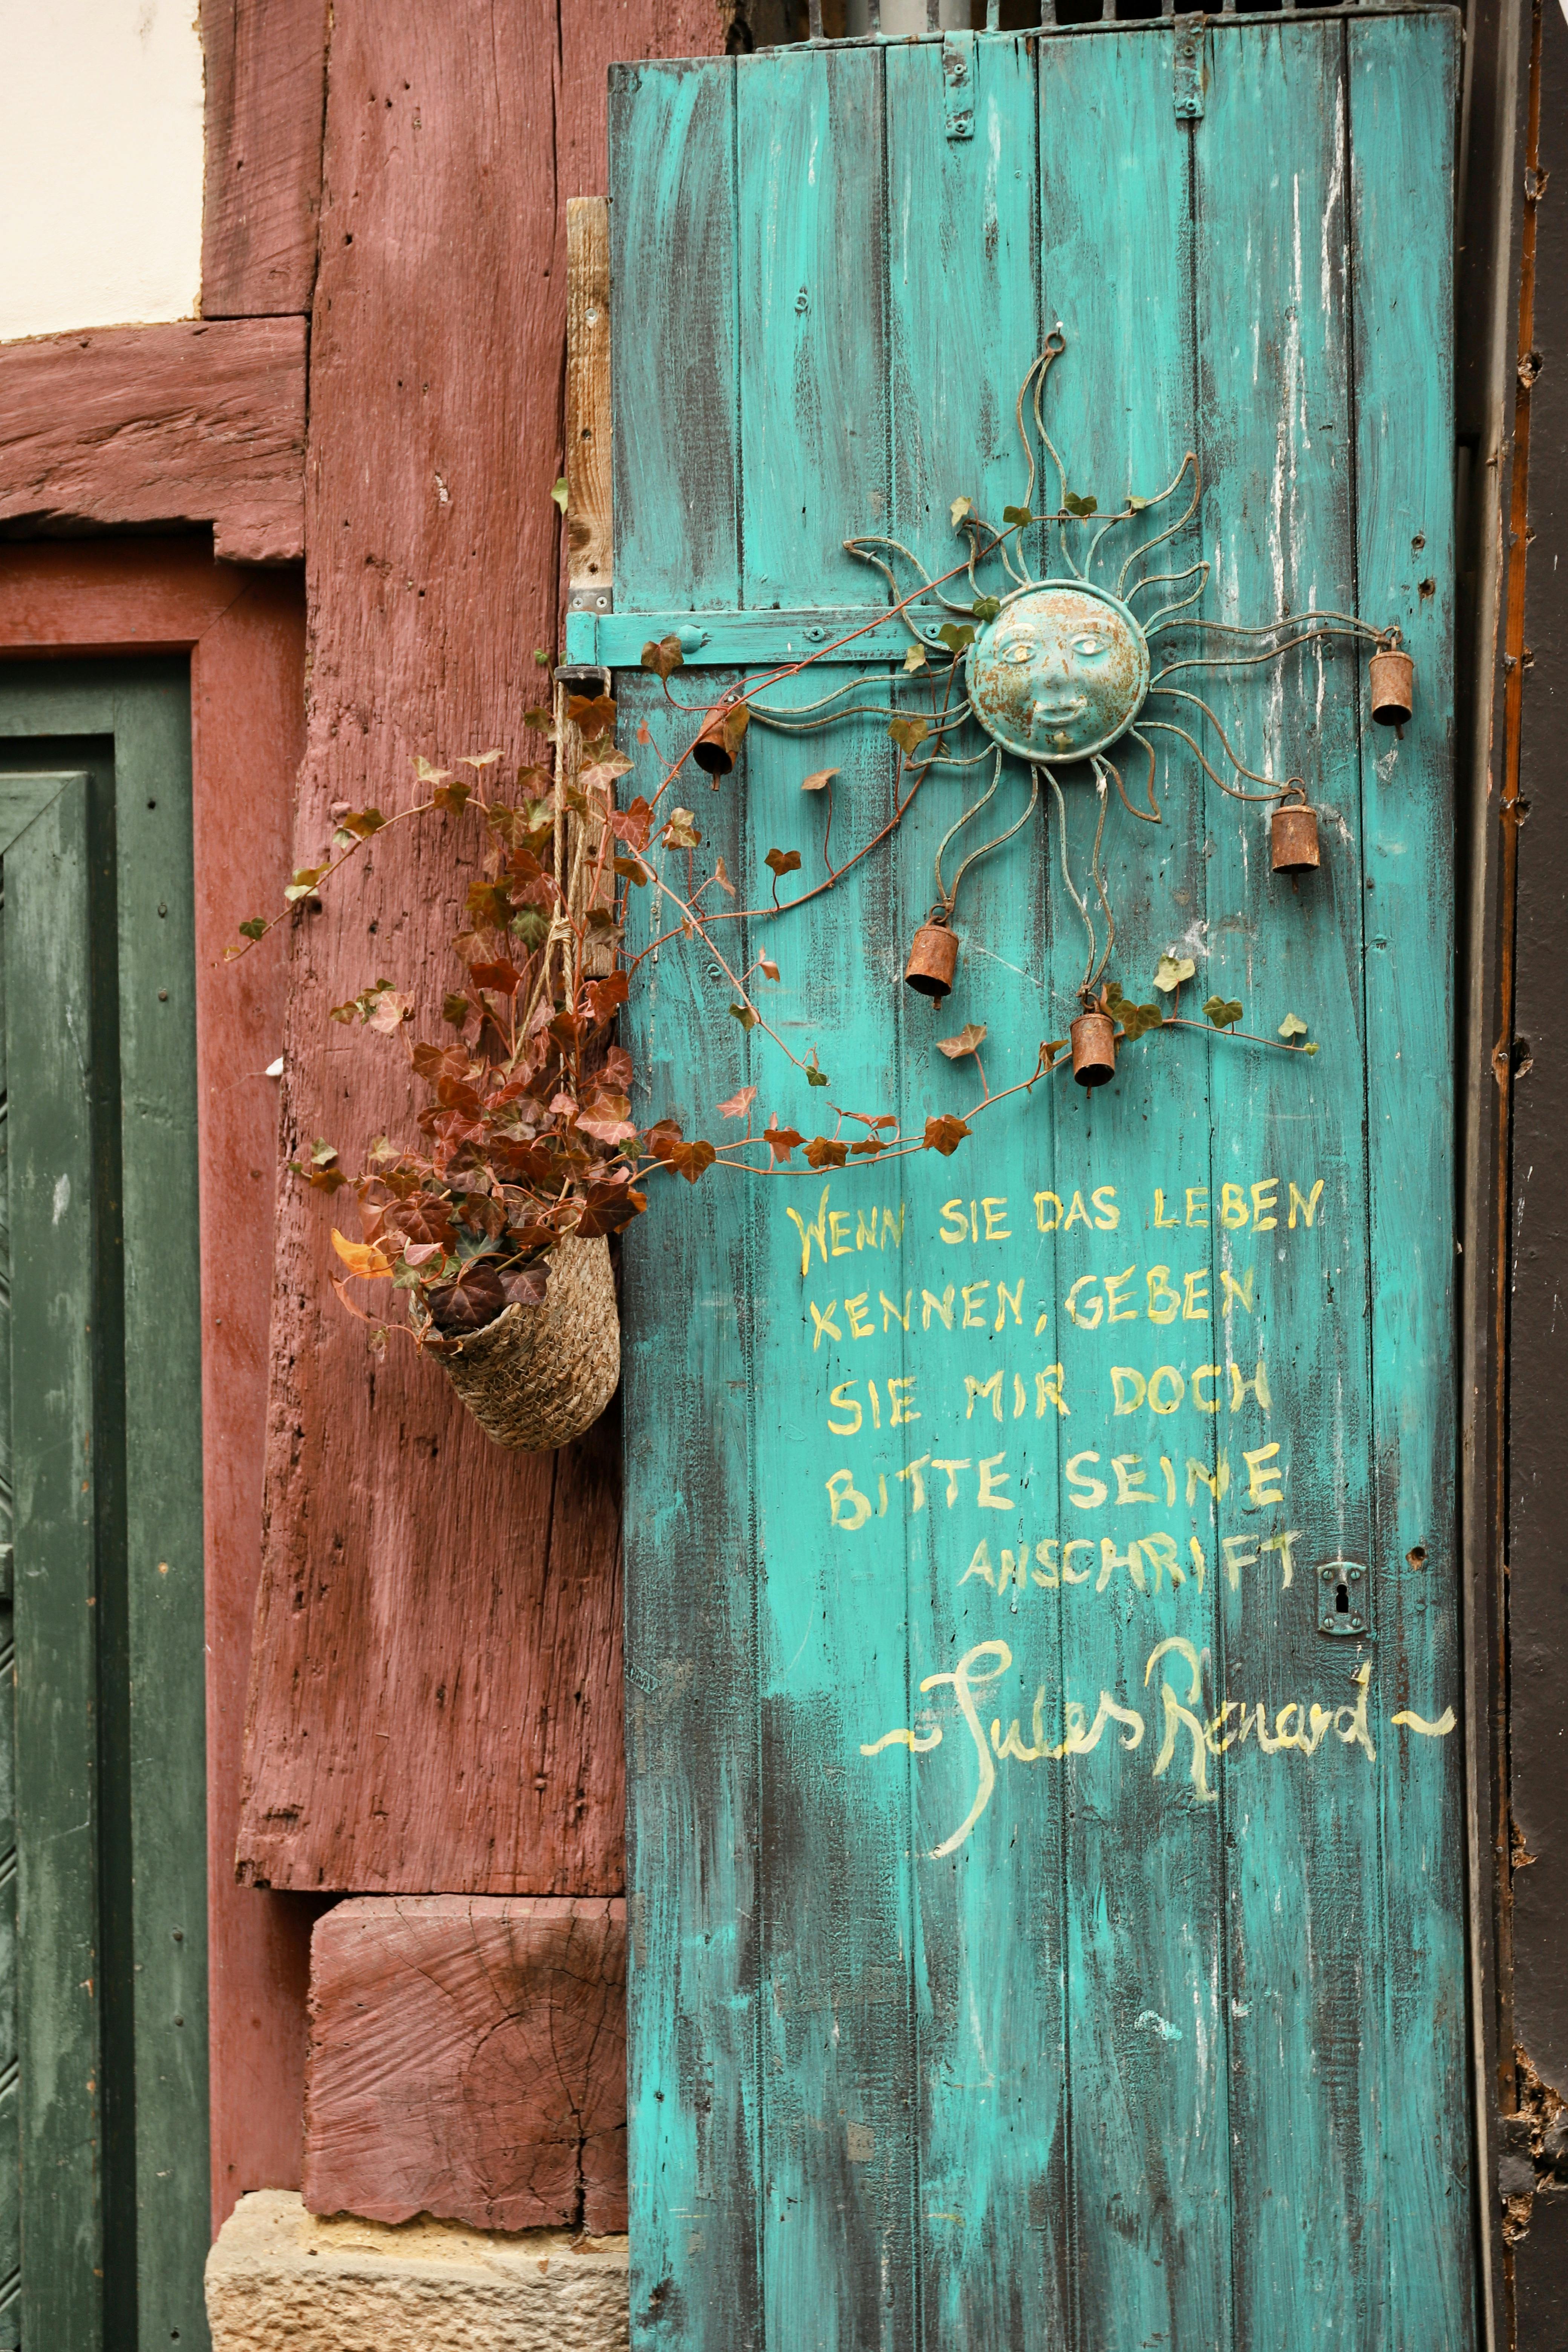 WENN SIE DAS LEBEN
KENNEN, GEBEN
SIE MIR DOCH
BITTE SEINE
ANSCHRIFT
~Jules Renard~